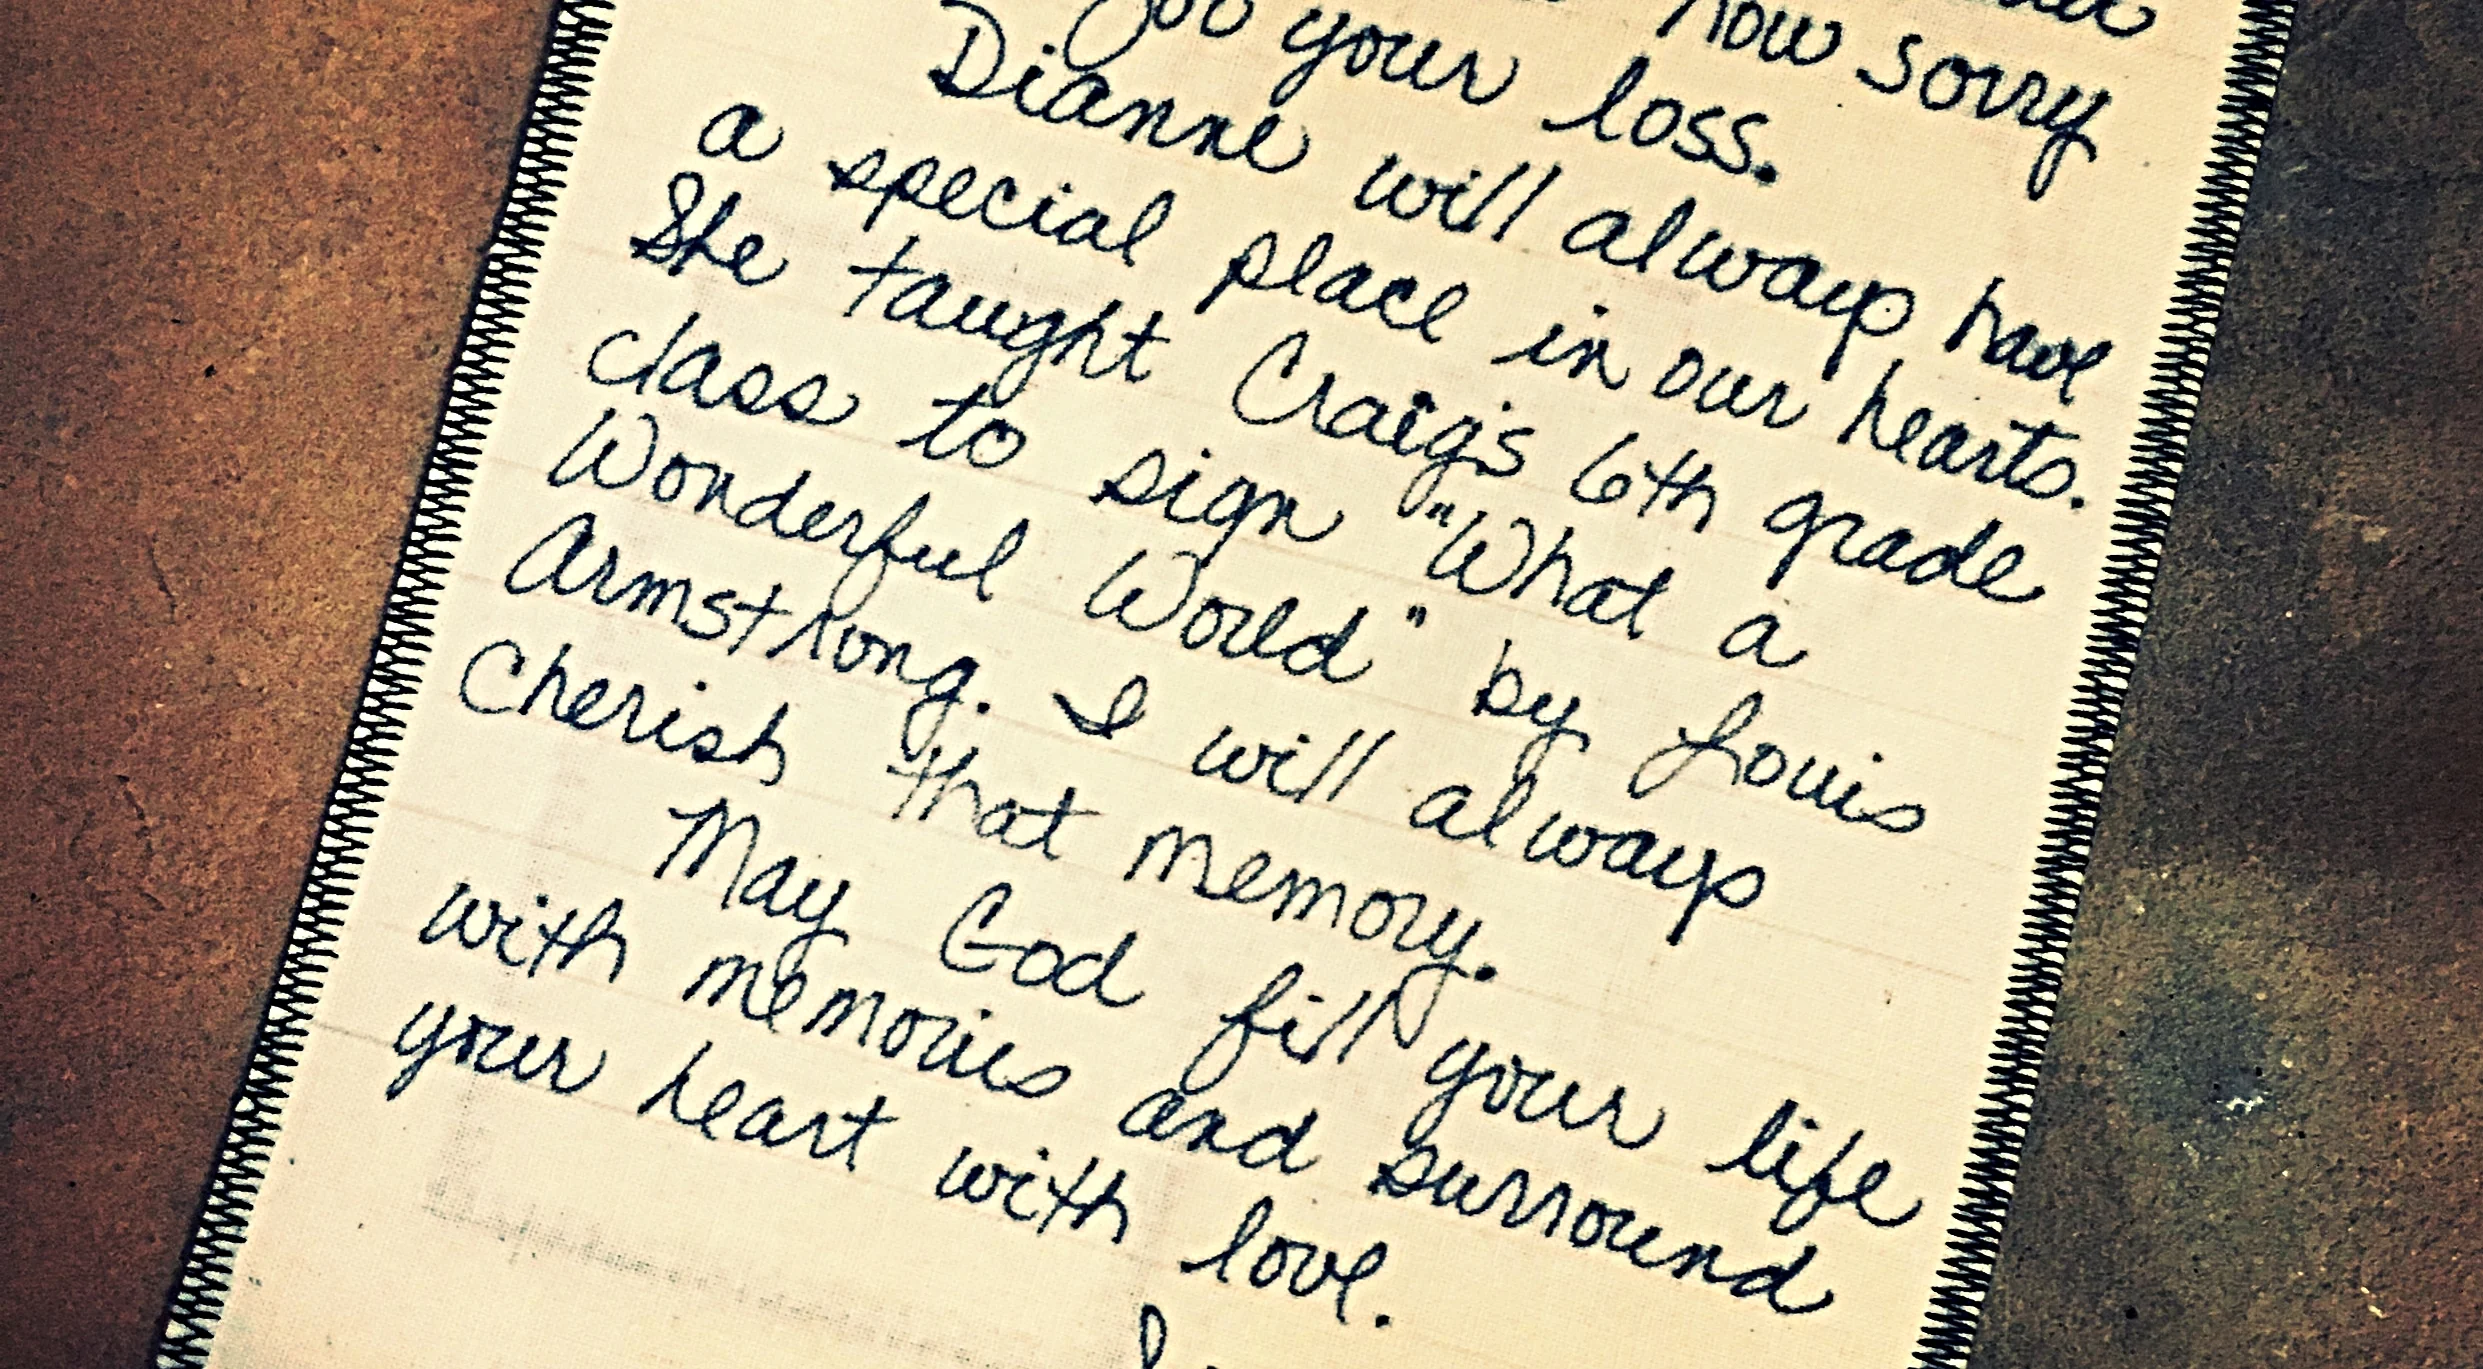 how sorry
for your loss.
Dianne will always have
a special place in our hearts.
She taught Craig's 6th grade
class to sign "What a
Wonderful World" by Louis
Armstrong. I will always
Cherish that memory.
May God fill your life
with memories and surround
your heart with love.